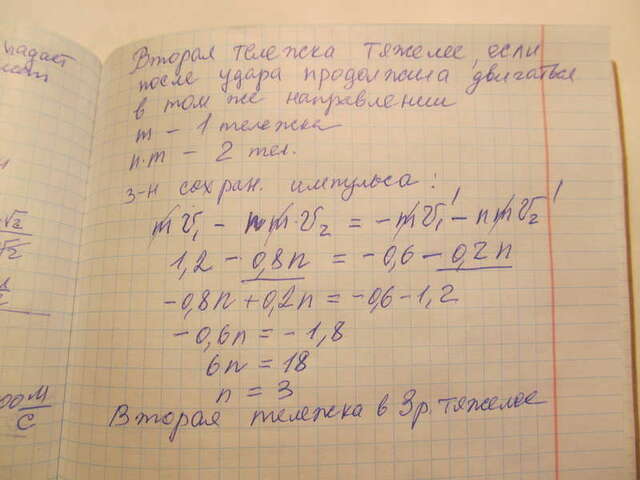 падает
Вторая тележка тяжелее, если
после удара продолжила двигаться
в том же направлении
m – 1 тележка
n·m – 2 тел.
з-н сохран. импульса:
mV₁ – nm·V₂ = –mV₁' – nmV₂'
1,2 – 0,8n = –0,6 – 0,2n
–0,8n + 0,2n = –0,6 – 1,2
–0,6n = –1,8
6n = 18
n = 3
Вторая тележка в 3 р. тяжелее
√2
00 м/с